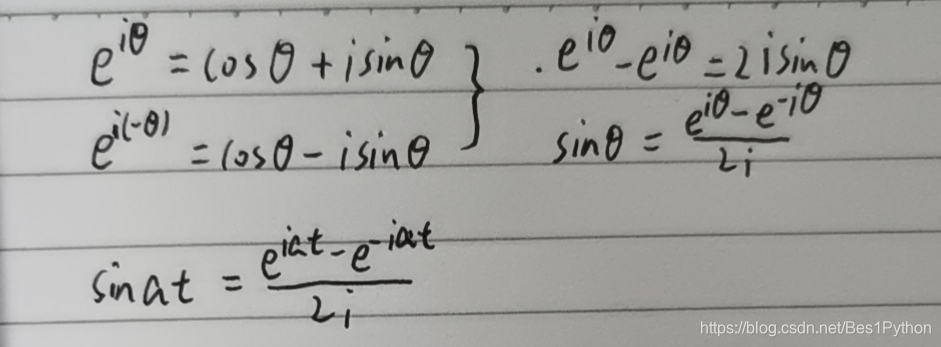 e^{iθ} = cosθ + isinθ } . e^{iθ} - e^{iθ} = 2isinθ
e^{i(-θ)} = cosθ - isinθ sinθ = \frac{e^{iθ} - e^{-iθ}}{2i}
sin at = \frac{e^{iat} - e^{-iat}}{2i}
https://blog.csdn.net/Bes1Python